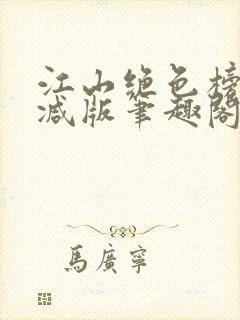 江山绝色榜
减版笔趣阁
馬廣寧